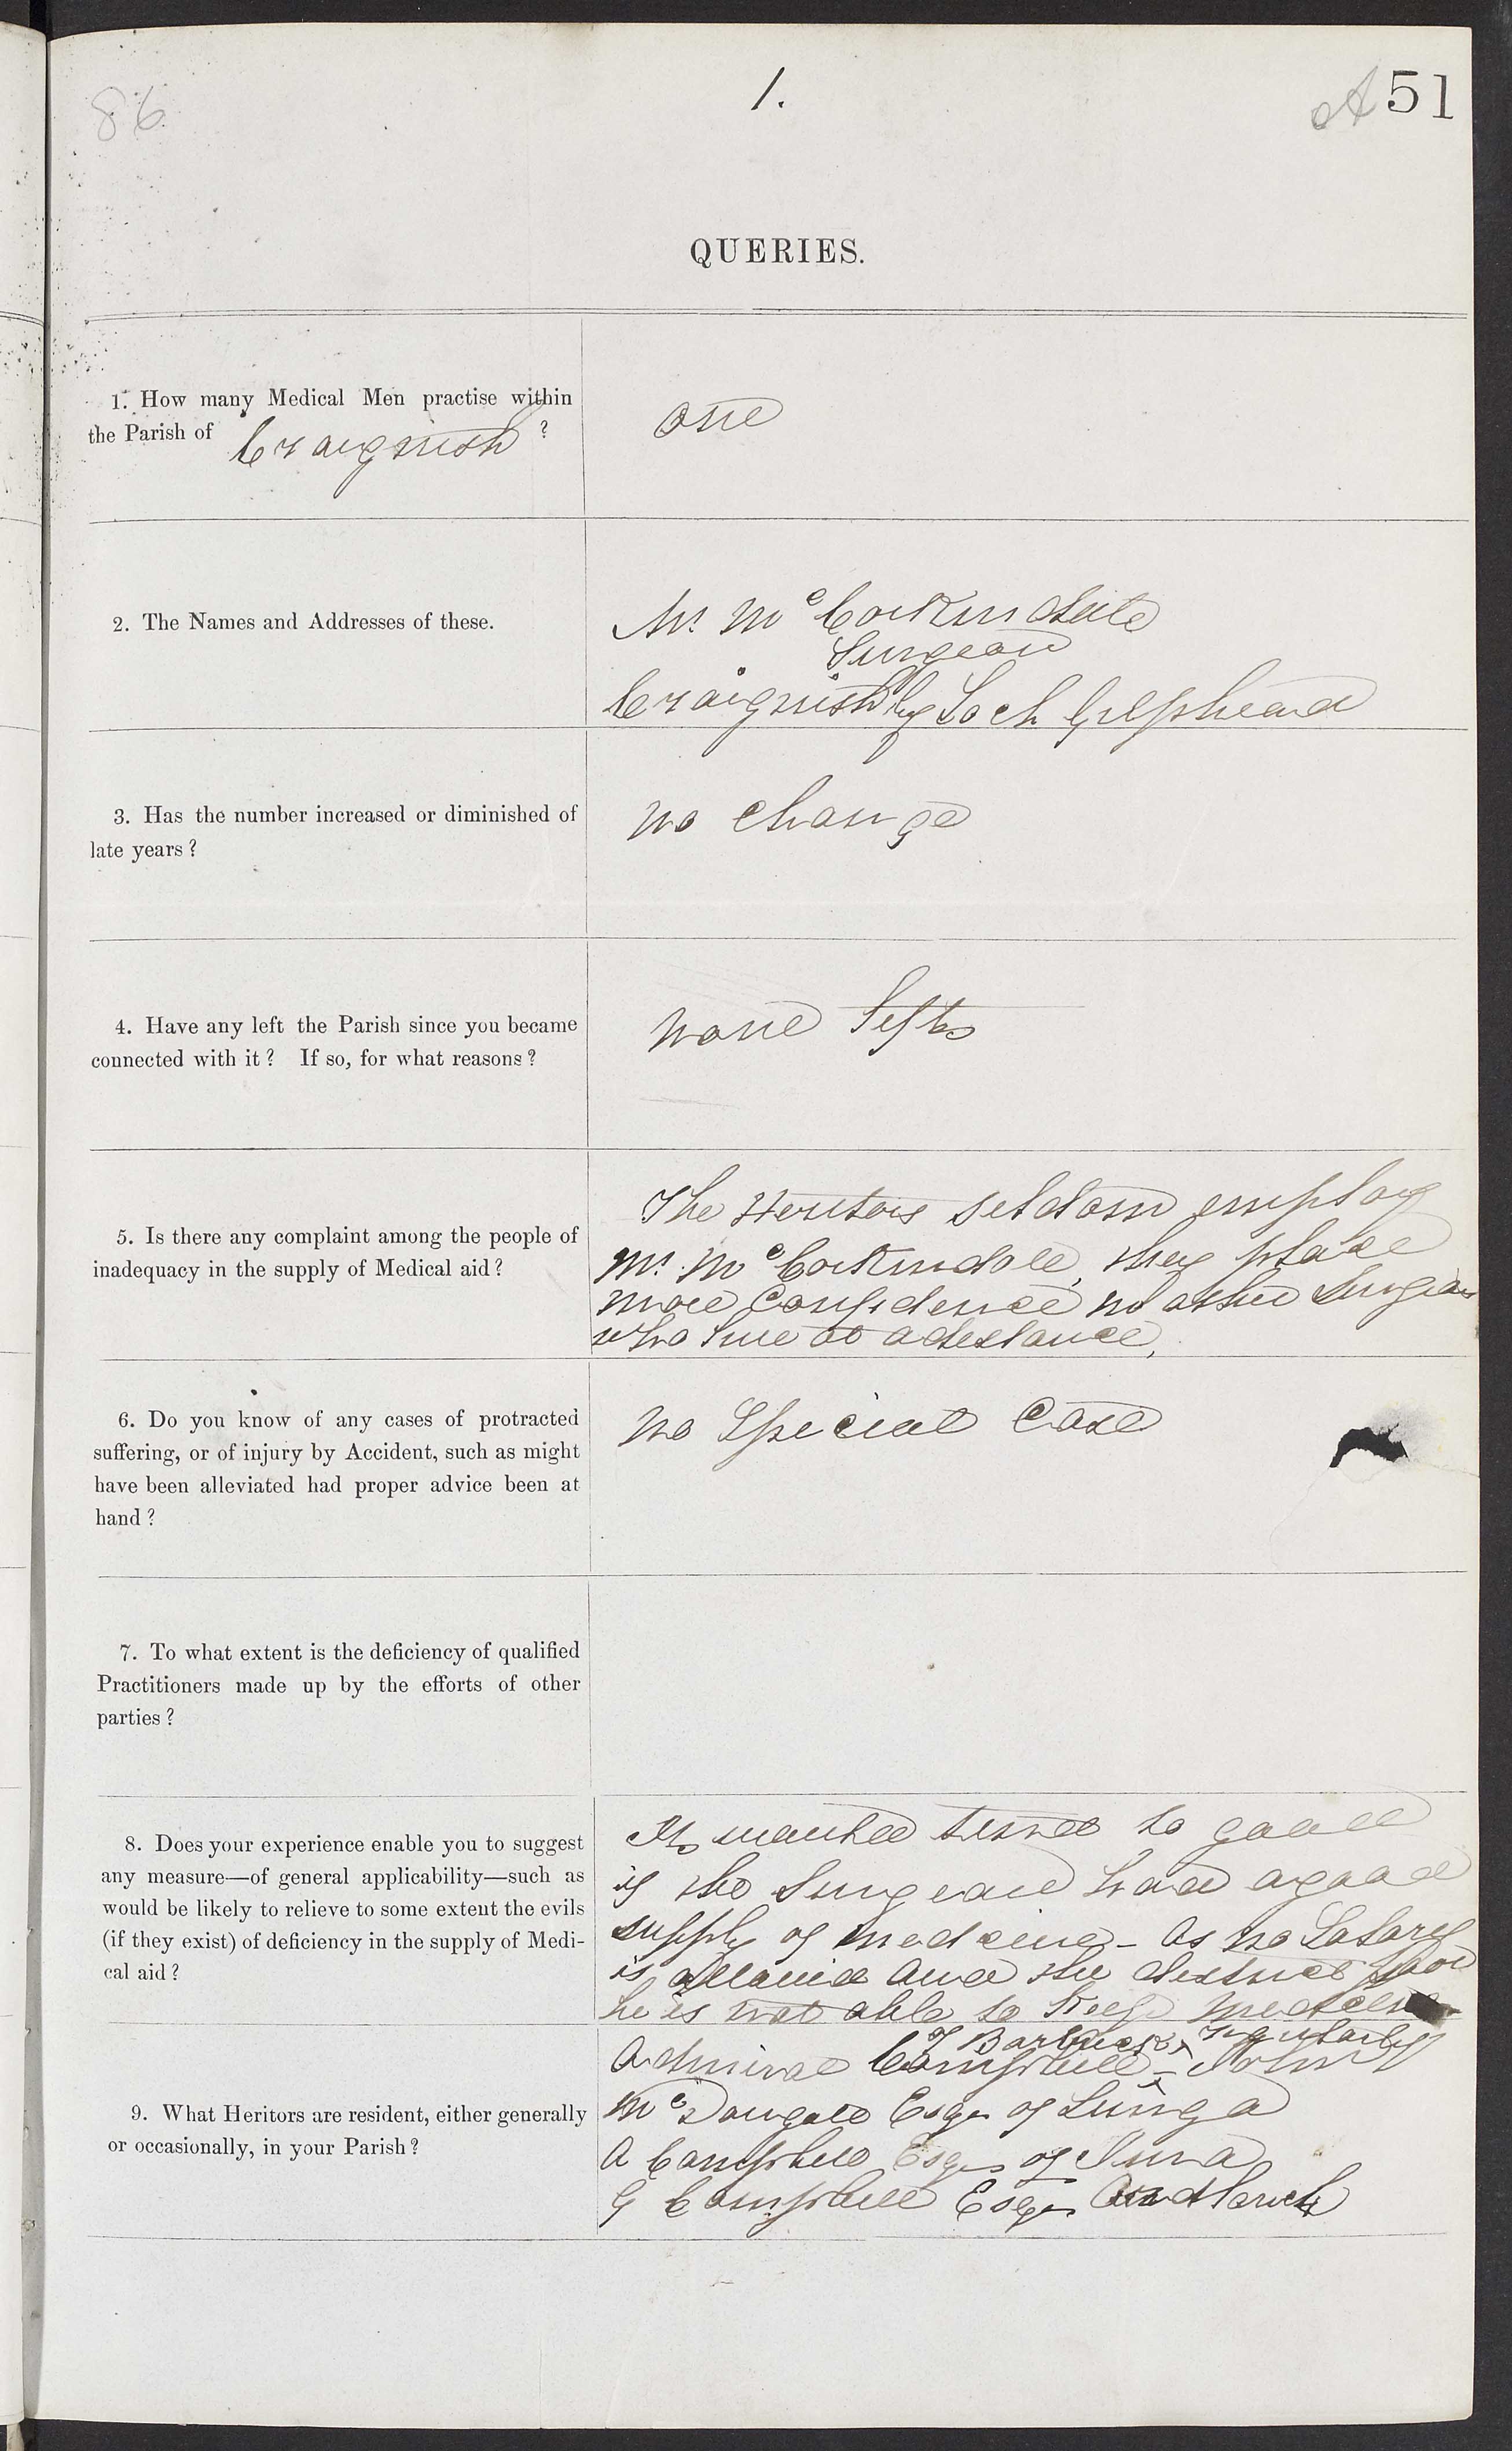 86
1.
A 51
QUERIES.
1. How many Medical Men practise within
the Parish of Craignish ?
one
2. The Names and Addresses of these.
Mr. McCorkindale
Surgeon
Craignish by Loch Gilphead
3. Has the number increased or diminished of
late years ?
no change
4. Have any left the Parish since you became
connected with it ? If so, for what reasons ?
none Lefts
5. Is there any complaint among the people of
inadequacy in the supply of Medical aid ?
The Heritors seldom employ
Mr. McCorkindale, they place
more Confidence in other Surgeons
who live at a distance,
6. Do you know of any cases of protracted
suffering, or of injury by Accident, such as might
have been alleviated had proper advice been at
hand ?
no Special Case
7. To what extent is the deficiency of qualified
Practitioners made up by the efforts of other
parties ?
8. Does your experience enable you to suggest
any measure—of general applicability—such as
would be likely to relieve to some extent the evils
(if they exist) of deficiency in the supply of Medi-
cal aid ?
It would tend to good
if the Surgeon had a good
supply of medicine - as no Salary
is allowed and the district poor
he is not able to keep medicine
regularly
9. What Heritors are resident, either generally
or occasionally, in your Parish ?
Admiral Campbell of Barbreck, John
McDougald Esqr of Lunga
A Campbell Esqr of Jura
G Campbell Esqr